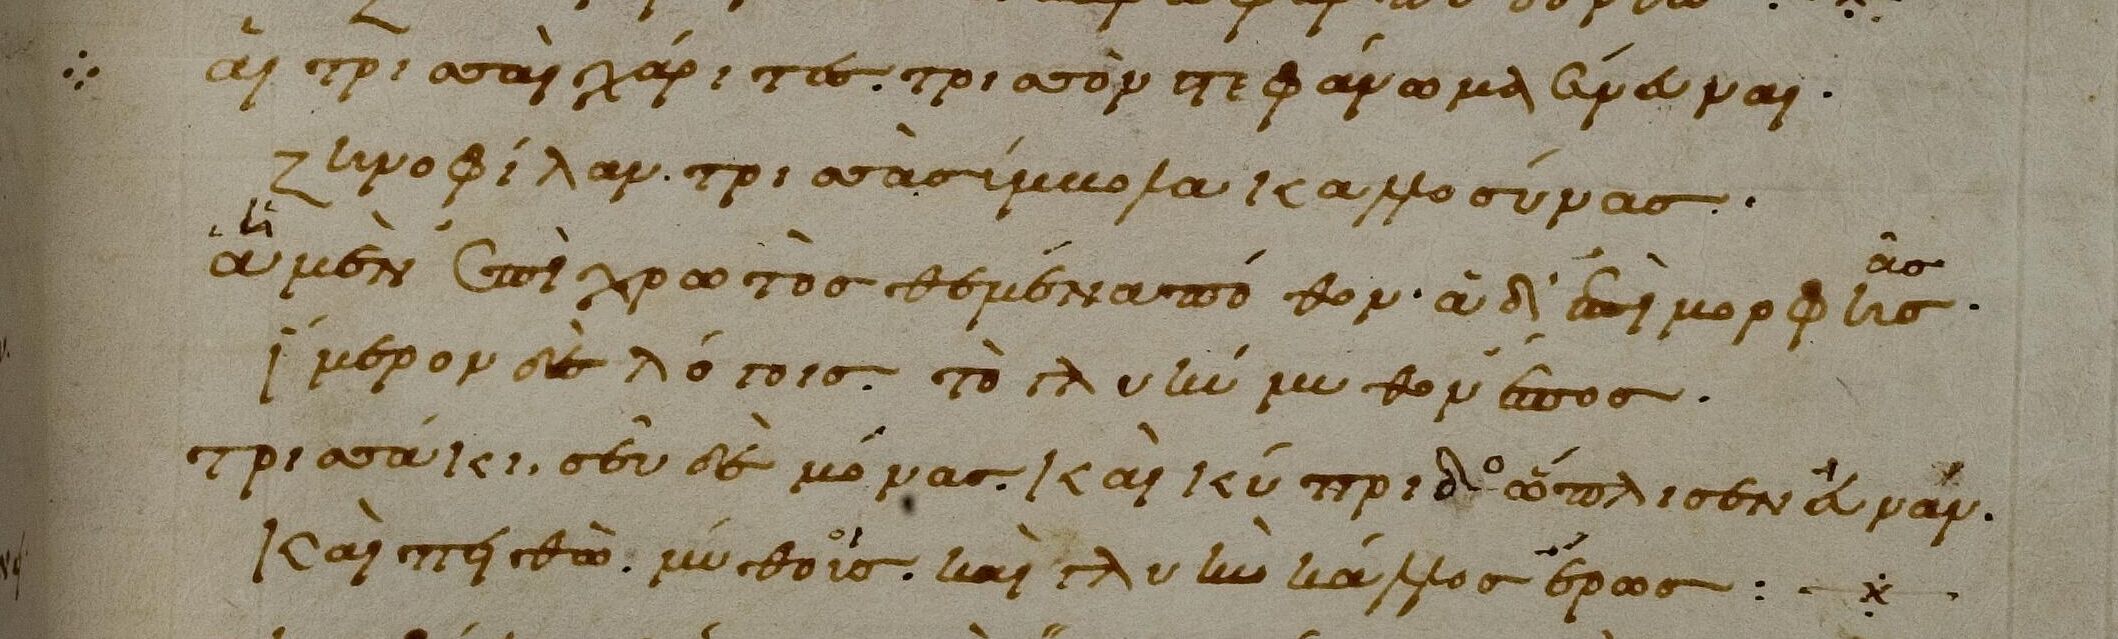 ἂι τρισσαὶ χάριτες. τρισσὸν στεφάνωμα εύνευναι.
ζηνοφίλαν. τρισσὰ σύμβολα καλλοσύνας.
ἁ μὲν ἐπὶ χρωτὸς θεμένα πόθον. ἁ δ' ἐπὶ μορφῆς. ᾶς
ἵμερον δὲ λόγοις. τὸ γλυκύμυθον ἔπος.
τρισσάκι. σεῦ δὲ μόνας. καὶ κύπριδο ὥπλισεν ἄναν.
καὶ πειθὼ. μύθοις. καὶ γλυκὺ κάλλος ἔρως: